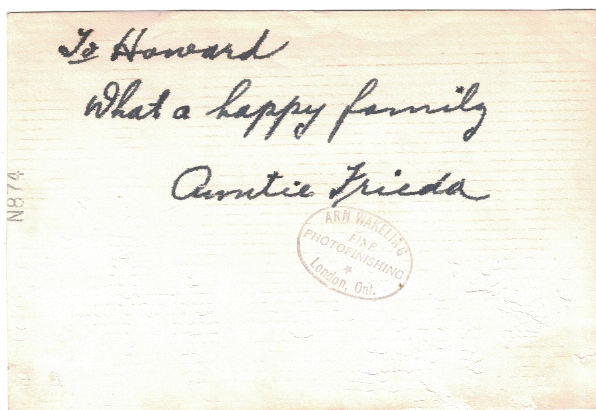 To Howard
What a happy family
Auntie Frieda
ARN WAKELING
FINE
PHOTOFINISHING
*
London, Ont.
N874